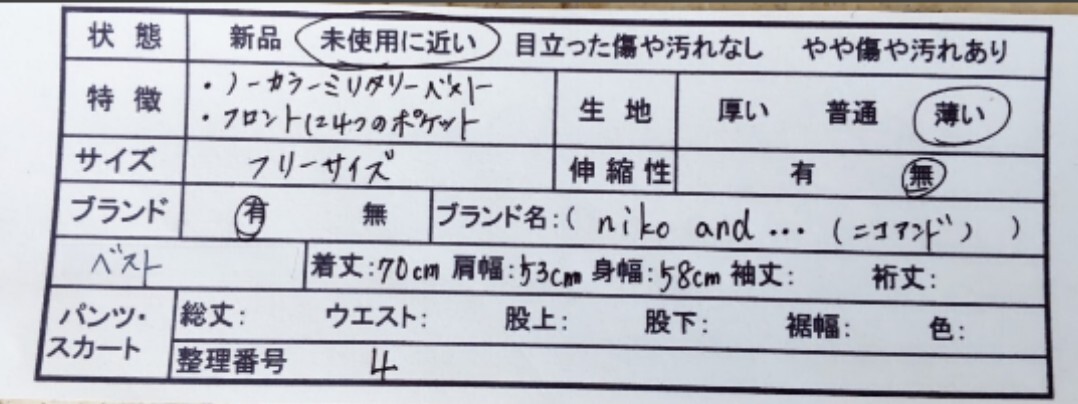 状態 新品 未使用に近い 目立った傷や汚れなし やや傷や汚れあり
特徴 ・ノーカラーミリタリーベスト
・フロントに4つのポケット
生地 厚い 普通 薄い
サイズ フリーサイズ 伸縮性 有 無
ブランド 有 無 ブランド名:( niko and ... (ニコアンド) )
ベスト 着丈:70cm 肩幅:53cm 身幅:58cm 袖丈: 裄丈:
パンツ・スカート 総丈: ウエスト: 股上: 股下: 裾幅: 色:
整理番号 4